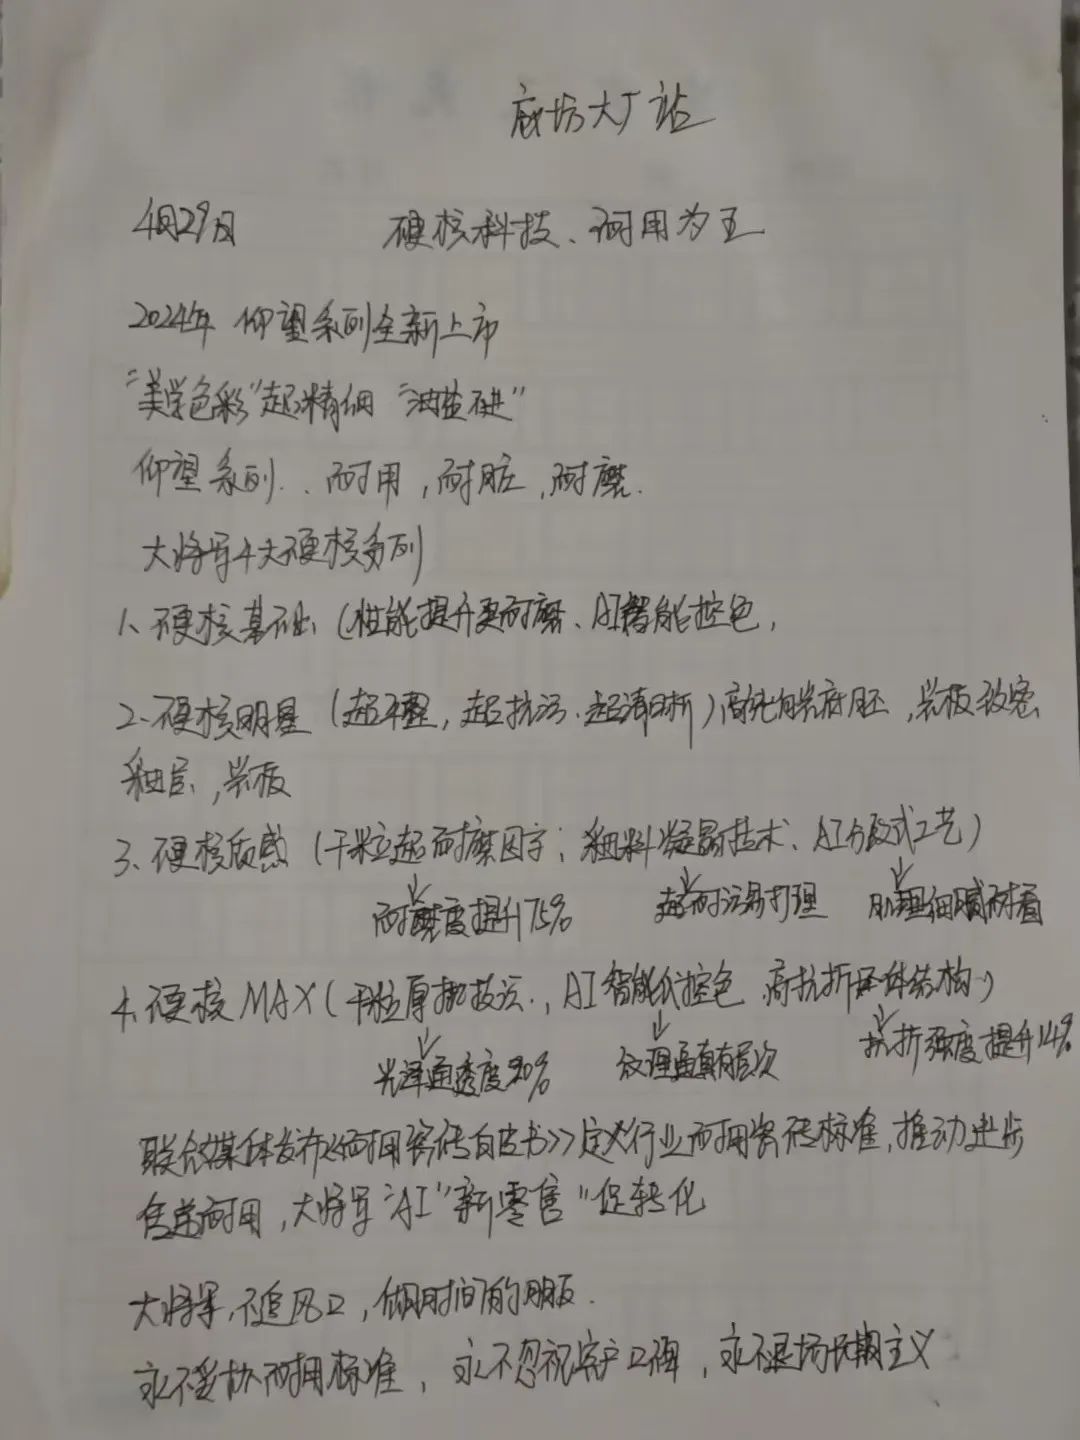 廊坊大厂站
4月29日 硬核科技、耐用为王
2024年 仰望系列全新上市
"美学色彩"超精细 "油盐不进"
仰望系列、耐用,耐脏,耐磨.
大将军4大硬核系列
1、硬核基础(性能提升更耐磨、AI智能控色,
2、硬核明星(超平整,超抗污、超清晰)高纯 底胚,岩板致密
釉层,岩板
3、硬核质感(干粒超耐磨因子;釉料凝晶技术、AI分段式工艺)
耐磨度提升75% 超耐污易打理 肌理细腻耐看
4、硬核MAX(干粒厚抛技法,AI智能化控色 高抗折坯体结构)
光泽通透度90% 纹理逼真有层次 抗折强度提升14%
联合媒体发布《耐用瓷砖白皮书》定义行业耐用瓷砖标准,推动进步
售卖耐用,大将军"AI"新零售"促转化
大将军,不追风口,做时间的朋友.
永不妥协耐用标准,永不忽视客户口碑,永不退场长期主义